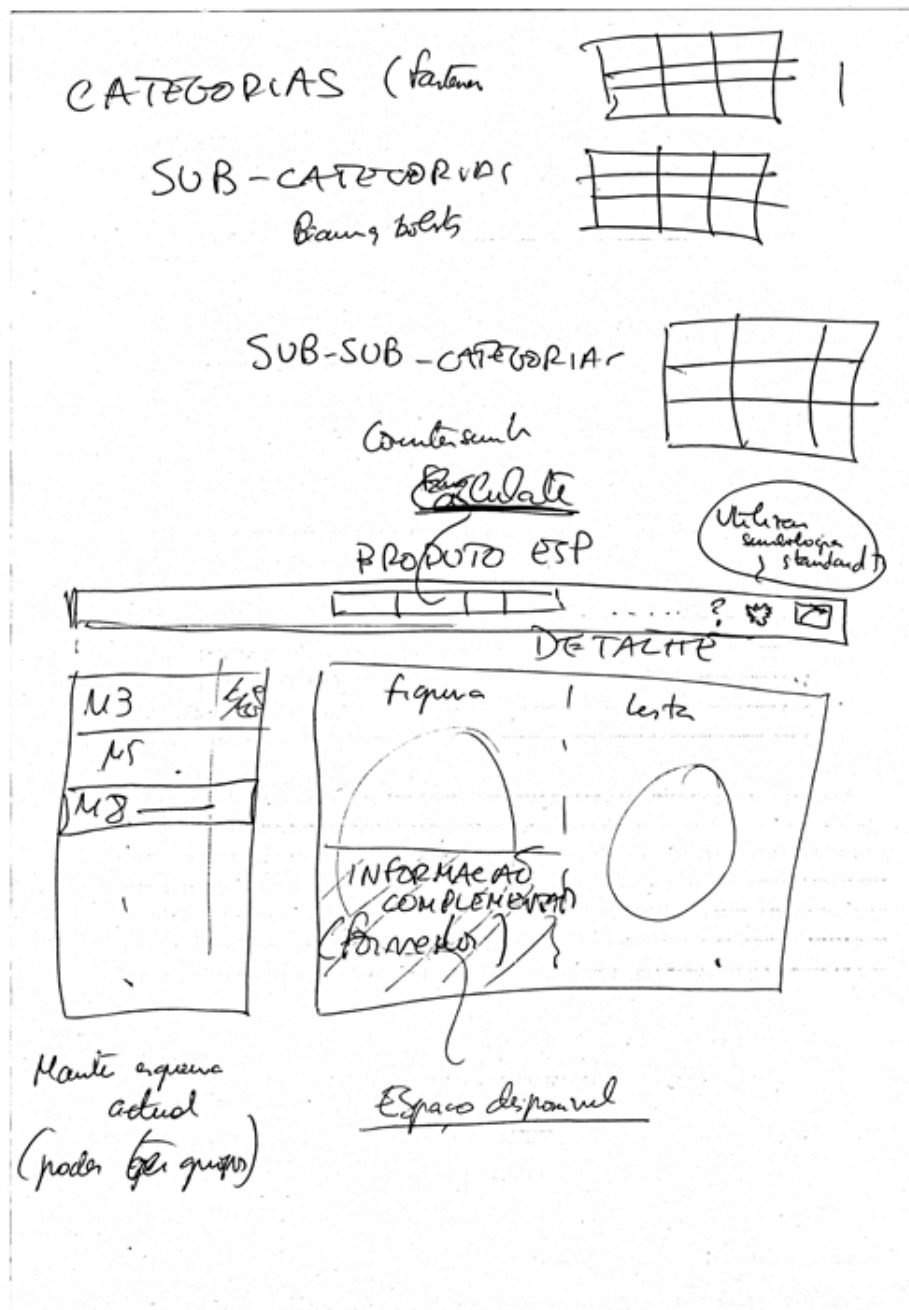 CATEGORIAS (fastener
SUB-CATEGORIAS
bolts
SUB-SUB-CATEGORIAS
Countersunk
Calculate
PRODUTO ESP
Utilizar
simbologia
standard
?
DETALHE
M3
M5
M8
figura
lista
INFORMAÇÃO
COMPLEMENTAR
(fornecedor)
Mante esquema
actual
(poder ter grupos)
Espaço disponivel